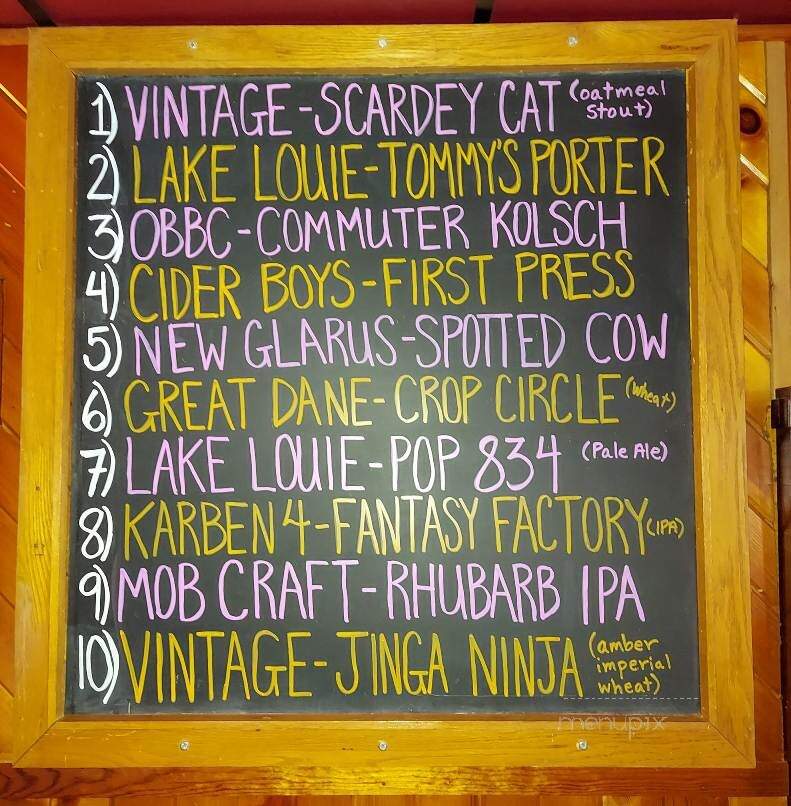 1) VINTAGE - SCARDEY CAT (oatmeal stout)
2) LAKE LOUIE - TOMMY'S PORTER
3) OBBC - COMMUTER KOLSCH
4) CIDER BOYS - FIRST PRESS
5) NEW GLARUS - SPOTTED COW
6) GREAT DANE - CROP CIRCLE (wheat)
7) LAKE LOUIE - POP 834 (Pale Ale)
8) KARBEN 4 - FANTASY FACTORY (IPA)
9) MOB CRAFT - RHUBARB IPA
10) VINTAGE - JINGA NINJA (amber imperial wheat)
menupix